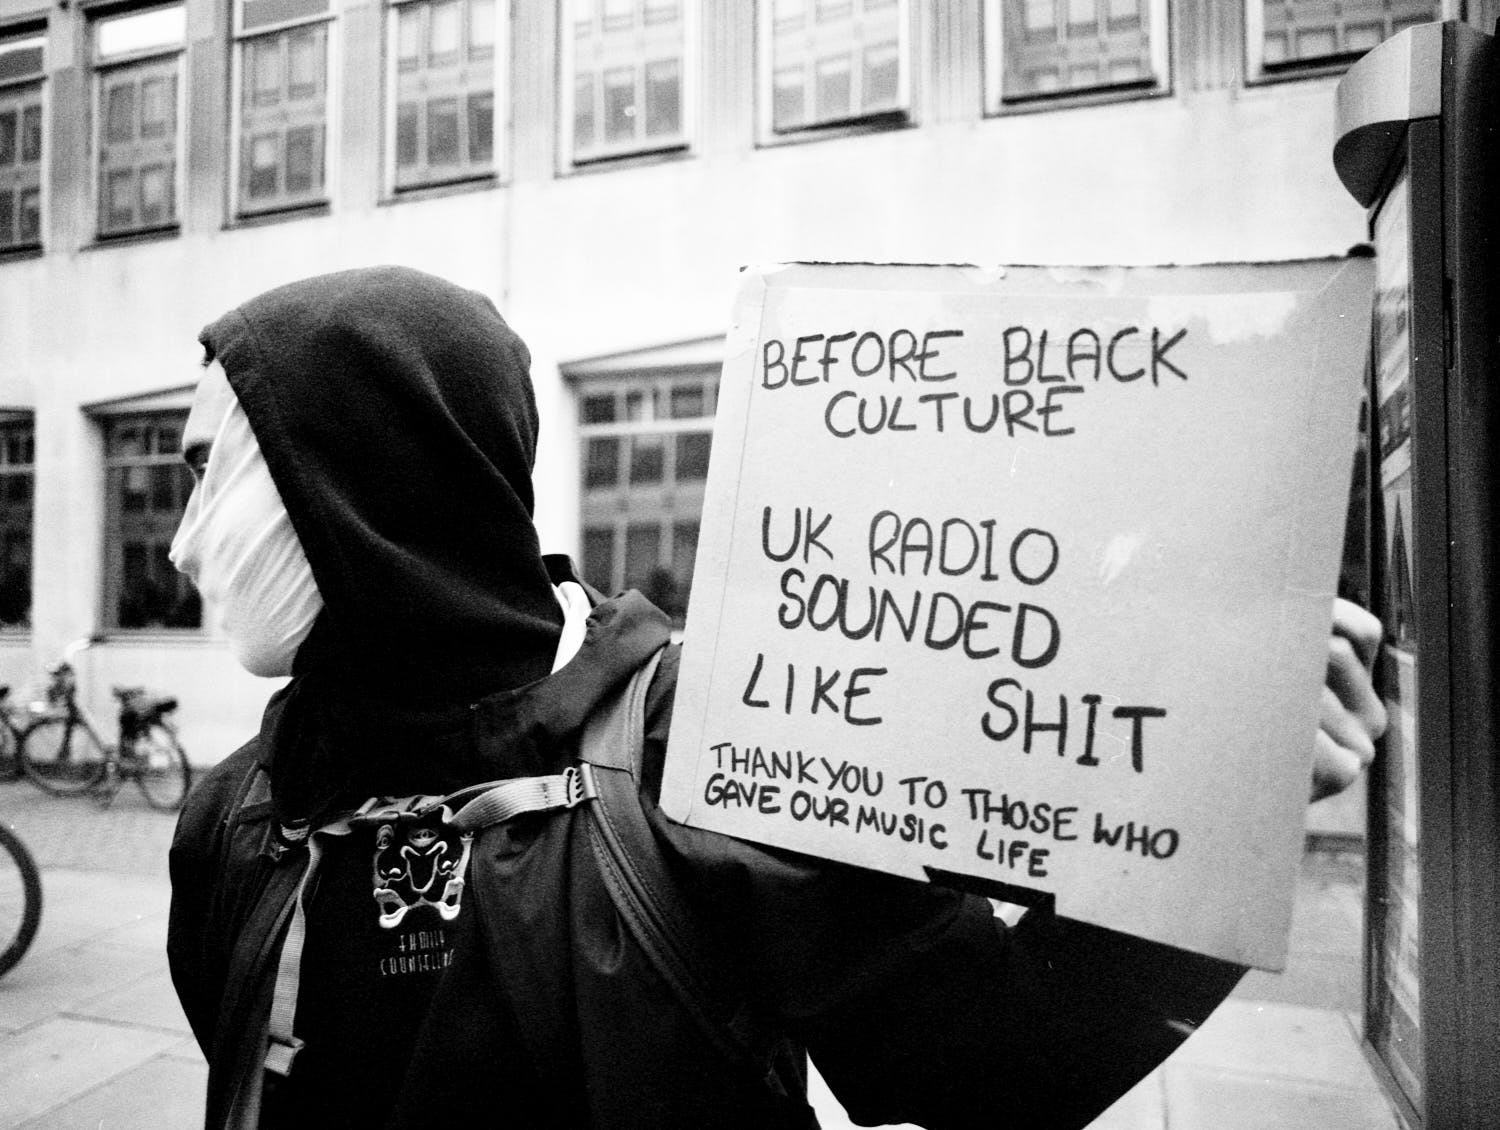 BEFORE BLACK
CULTURE
UK RADIO
SOUNDED
LIKE SHIT
THANKYOU TO THOSE WHO
GAVE OUR MUSIC LIFE
FAMILY
COUNSELLING